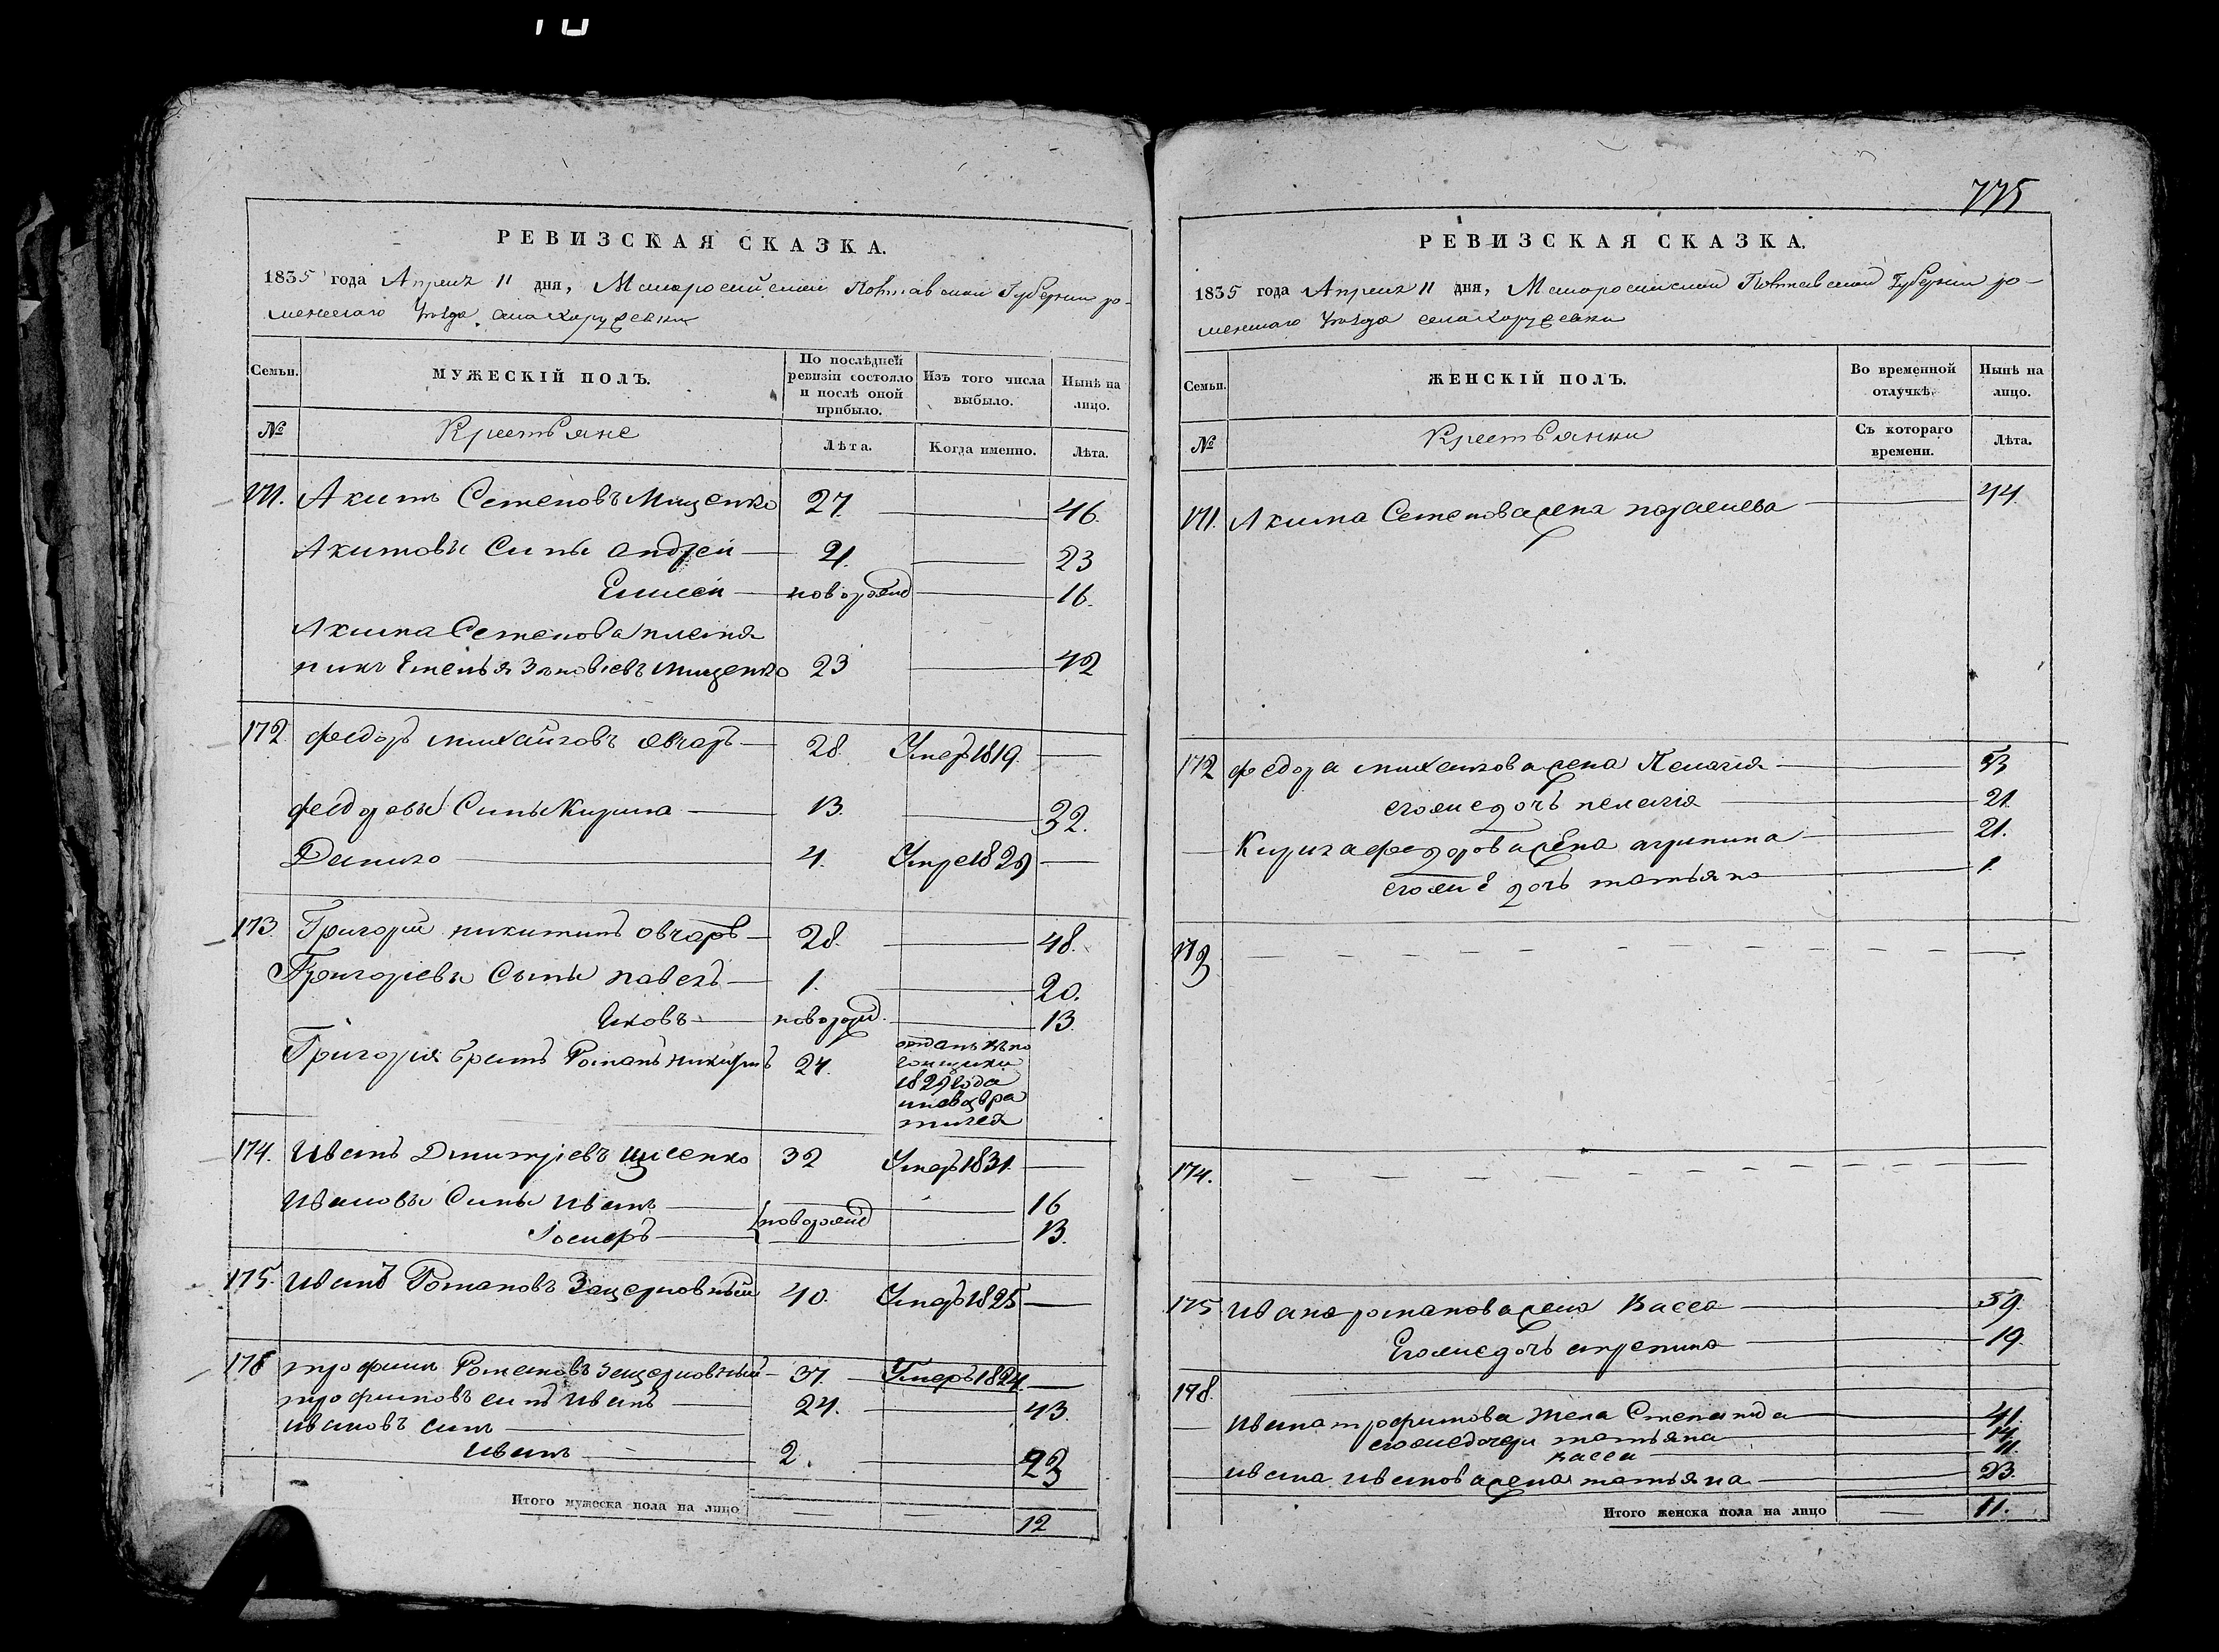 775
РЕВИЗСКАЯ СКАЗКА.
1835 года Апреля 11 дня, Малоросийской Полтавской Губернии ро-
менского уезда села Хоружевки
Семьи.
МУЖЕСКІЙ ПОЛЪ.
По послѣдней ревизіи состояло и послѣ оной прибыло.
Изъ того числа выбыло.
Нынѣ на лицо.
№
Крестьяне
Лѣта.
Когда именно.
Лѣта.
171. Акимъ Семеновъ Мищенко 27. 46.
Акимовы Сины Андрей 4. 23
Елисей новорожд 16.
Акима Семенова племя
никъ Емельян Мищенко 23 42
172. Федоръ михайловъ овчаръ 28. Умеръ 1819.
Федоровы Сины Кирило 13. 32.
Данило 4. Умре 1829
173. Григорий никитинъ овчаръ 28. 48.
Григориевы Сыны павелъ 1. 20.
Яковъ новорожд. 13.
Григория братъ Романъ никитинъ 24. отданъ въ по
гонщики
1829 года
и невозвра
тился
174. Иванъ Дмитріевъ 32 Умеръ 1831.
Ивановы Сины Иванъ новорожд 16
13.
175. Иванъ Романовъ 40. Умеръ 1825
176 трофимъ Романовъ 37. Умеръ 1824
трофимовъ синъ Иванъ 24. 43.
Ивановъ синъ
Иванъ 2. 23
Итого мужеска пола на лицо 12
РЕВИЗСКАЯ СКАЗКА.
1835 года Апреля 11 дня, Малоросийской Полтавской Губернии ро-
менского уезда села Хоружевки
Семьи.
ЖЕНСКІЙ ПОЛЪ.
Во временной отлучкѣ.
Нынѣ на лицо.
№
Крестьянки
Съ котораго времени.
Лѣта.
171. Акима Семенова жена 44.
172 Федора михайлова жена Пелагия 53
егоже дочь пелагия 21.
Кирила федорова жена агрипина 21.
егоже дочь татьяна 1.
173
174.
175 Ивана романова жена Васса 59.
Егоже дочь 19.
176.
Ивана трофимова жена Степанида 41.
егоже дочери татьяна 14.
васса 11.
Ивана Иванова жена татьяна 23.
Итого женска пола на лицо 11.